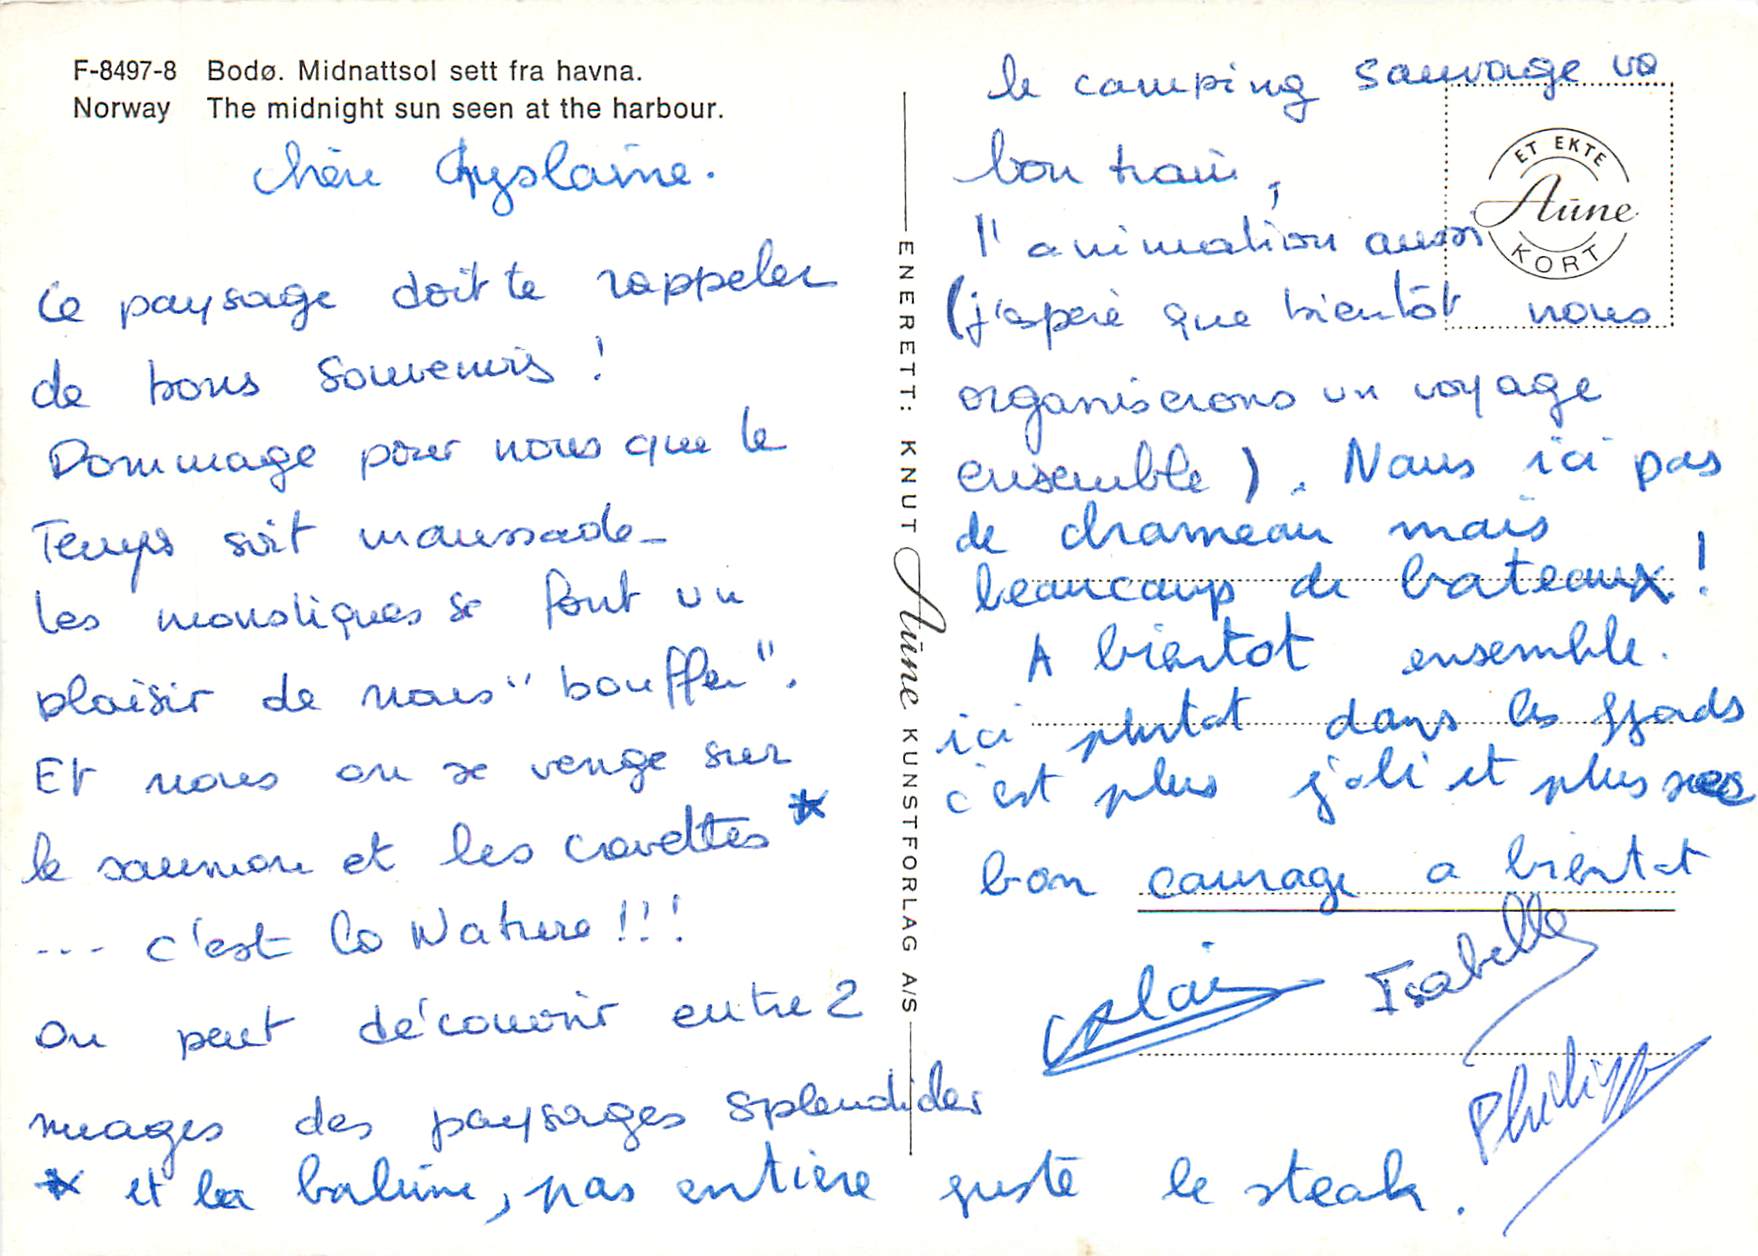 F-8497-8 Bodø. Midnattsol sett fra havna.
Norway The midnight sun seen at the harbour.
Chère Ghyslaine.
Ce paysage doit te rappeler
de bons souvenirs !
Dommage pour nous que le
Temps soit maussade_
Les moustiques se font un
plaisir de nous "bouffer".
Et nous on se venge sur
le saumon et les crevettes *
--- c'est la Nature !!!
On peut découvrir entre 2
nuages des paysages splendides
* et la baleine, pas entière juste le steak.
ENERETT: KNUT Aune KUNSTFORLAG A/S
le camping sauvage va
bon train,
l'animation aussi
(j'espère que bientôt nous
organiserons un voyage
ensemble). Nous ici pas
de chameau mais
beaucoup de bateaux !
A bientot ensemble.
ici plutot dans les fjords
c'est plus joli et plus
bon courage a bientot
Alain Isabelle
Philippe
ET EKTE
Aune
KORT